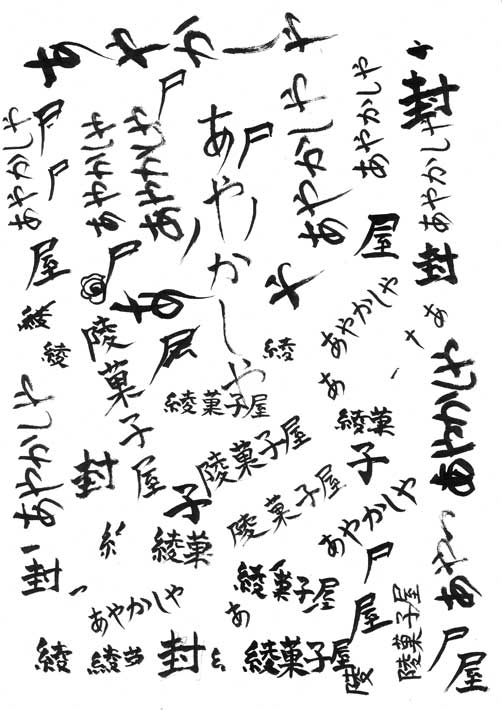 あやかしや
封
あやかしや
あやかしや
あやかしや
あやかしや
あやかしや
あやかしや
あやかしや
尸
尸
尸
尸
屋
屋
尸
封
綾
綾
陵菓子屋
あ
尸
や
綾
あやかしや
あ
あ
あやかしや
綾菓子屋
綾菓子
あやかしや
封
子
陵菓子屋
陵菓子屋
あやかしや
あや
糸
綾菓
封
あやかしや
綾菓子屋
あ
尸
屋
陵菓子屋
尸
屋
綾
綾
封
綾菓子屋
陵